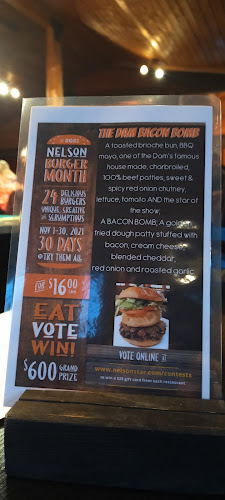 NELSON
BURGER
MONTH
24 DELICIOUS
BURGERS
UNIQUE, CREATIVE
& SCRUMPTIOUS
NOV 1-30, 2021
30 DAYS
TO TRY THEM ALL
FOR $16.00
EACH
EAT
VOTE
WIN!
$600 GRAND
PRIZE
THE DAM BACON BOMB
A toasted brioche bun, BBQ
mayo, one of the Dam's famous
house made, charbroiled,
100% beef patties, sweet &
spicy red onion chutney,
lettuce, tomato AND the star of
the show;
A BACON BOMB: A golden
fried dough patty stuffed with
bacon, cream cheese,
blended cheddar,
red onion and roasted garlic
VOTE ONLINE at
www.nelsonstar.com/contests
to win a $25 gift card from each restaurant